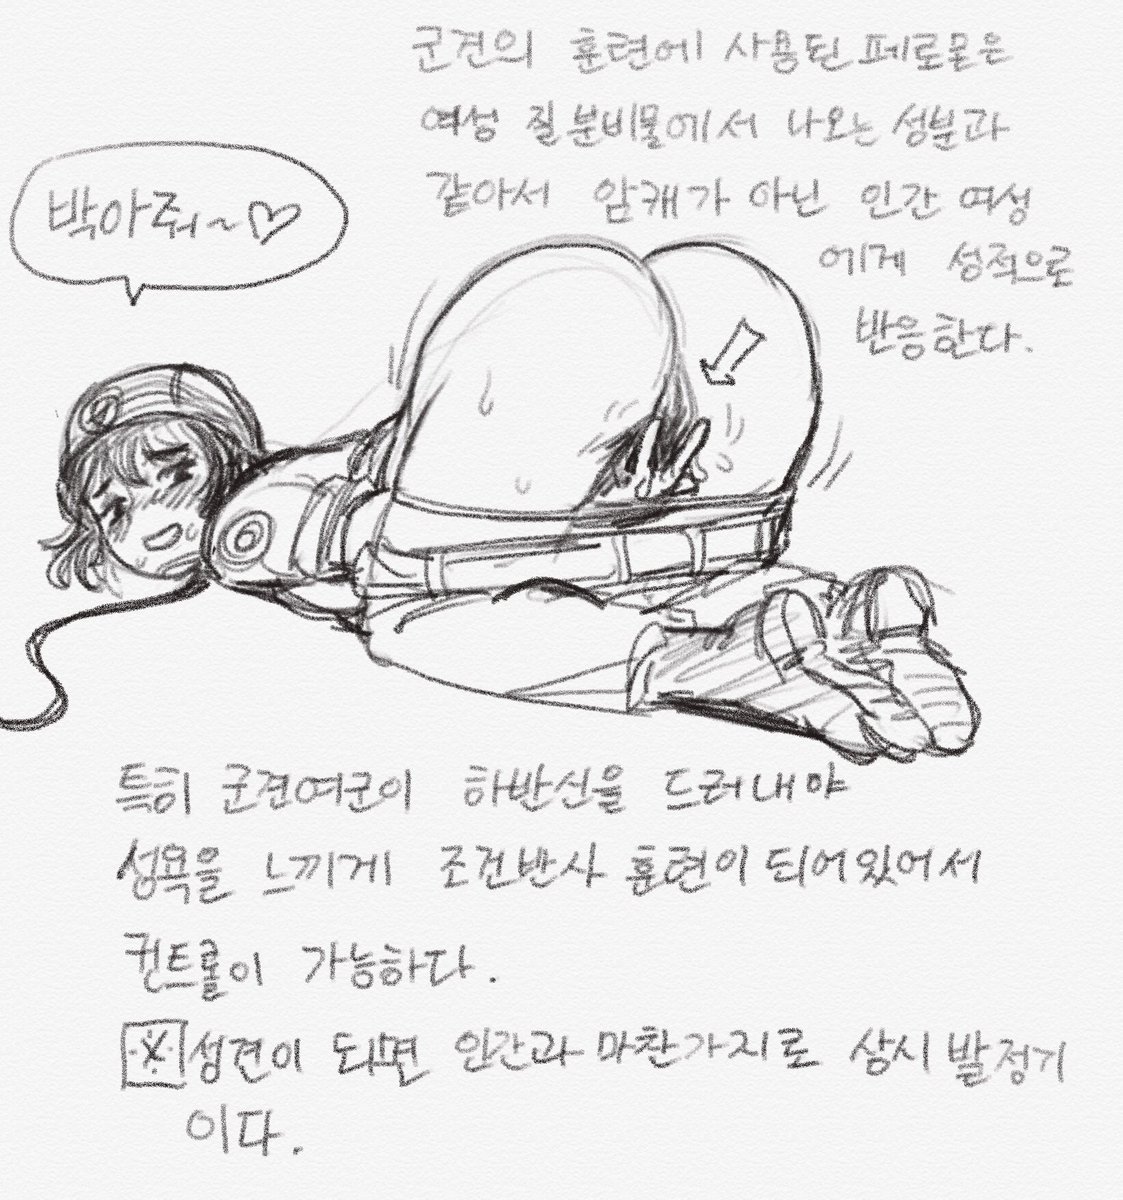 군견의 훈련에 사용된 페로몬은
여성 질 분비물에서 나오는 성분과
같아서 암캐가 아닌 인간 여성
에게 성적으로
반응한다.
박아줘~♡
특히 군견여군이 하반신을 드러내야
성욕을 느끼게 조건반사 훈련이 되어있어서
컨트롤이 가능하다.
※ 성견이 되면 인간과 마찬가지로 상시 발정기
이다.